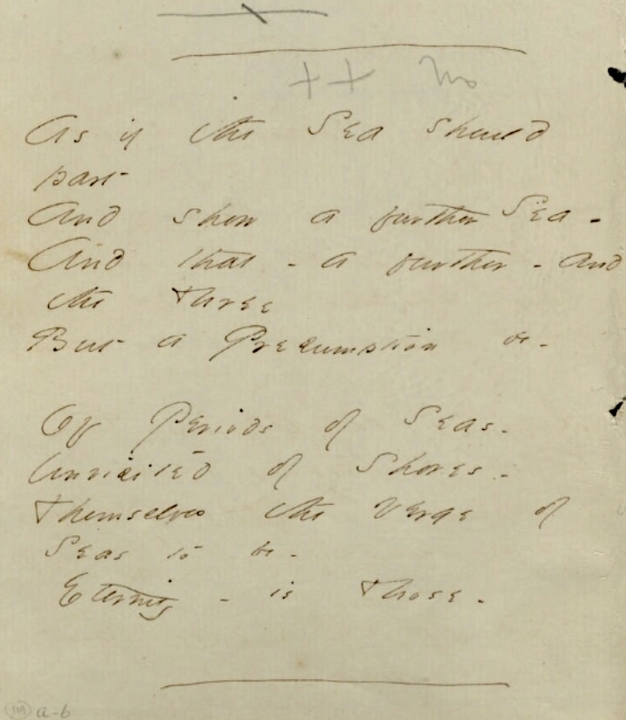 ++ No
As if the Sea should
part
And show a further Sea -
And that - a further - and
the Three
But a Presumption be -
Of Periods of Seas -
Unvisited of Shores -
Themselves the Verge of
Seas to be -
Eternity - is Those -
a-b